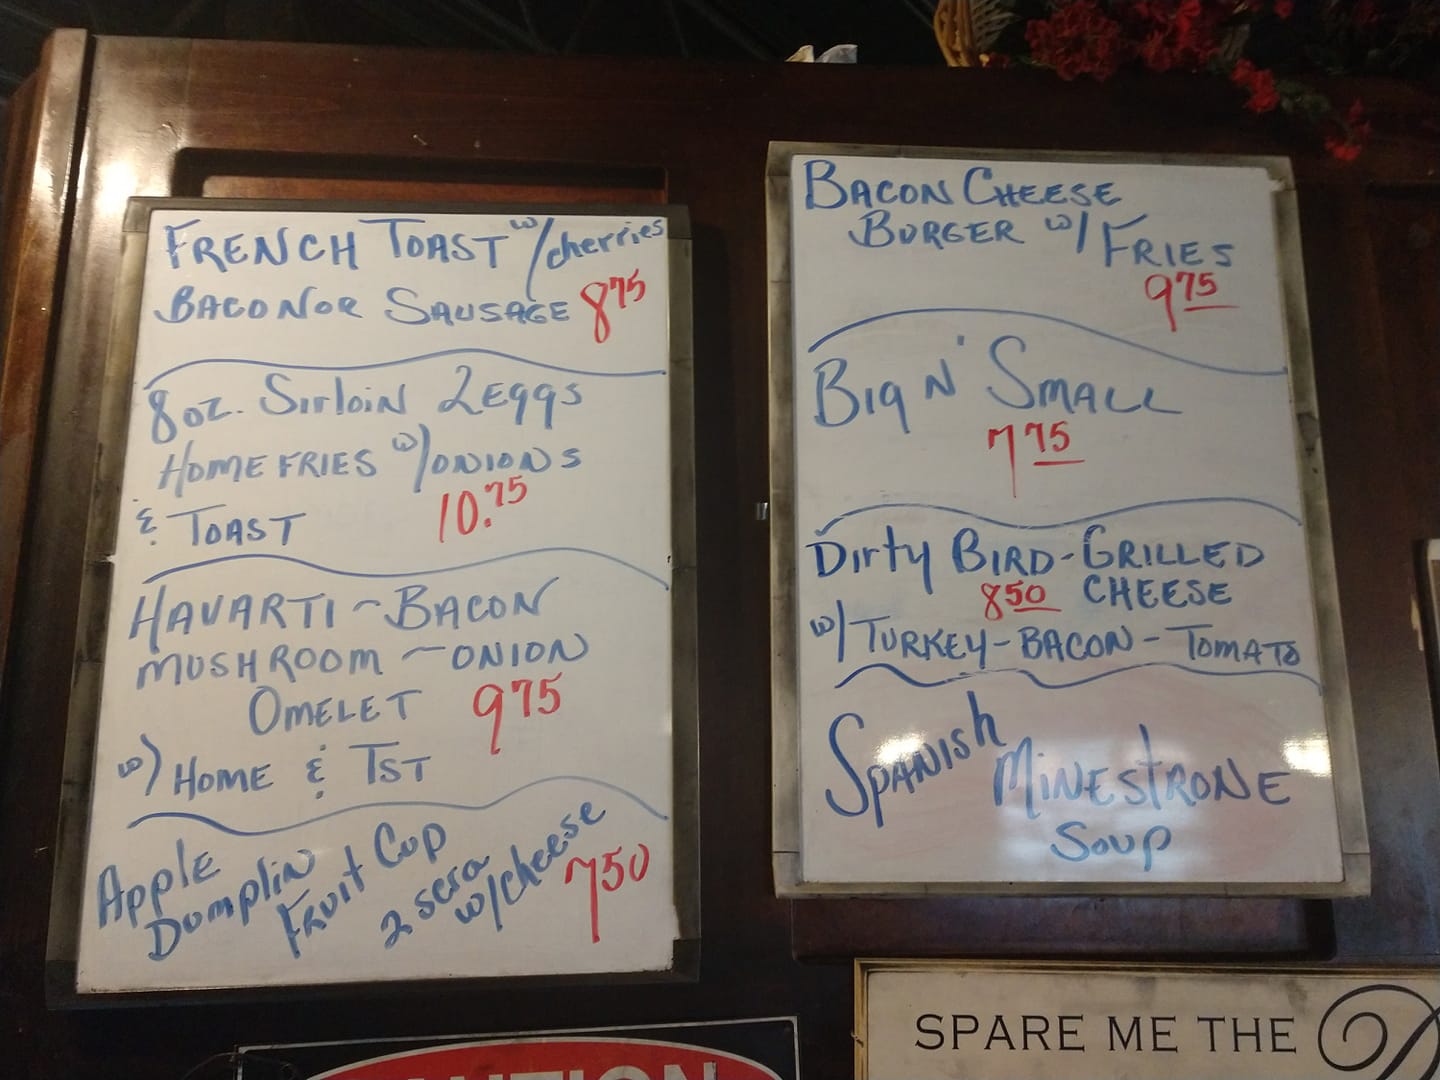 FRENCH TOAST w/cherries
BACON OR SAUSAGE 875
8oz. Sirloin 2 Eggs
HOME FRIES w/ONIONS
& TOAST 10.75
HAVARTI ~ BACON
MUSHROOM ~ ONION
OMELET 975
w/ HOME & TST
Apple
Dumplin
Fruit Cup
2 scra
w/cheese
750
BACON CHEESE
BURGER w/ FRIES
975
Big N' SMALL
775
Dirty BIRD - GRILLED
850 CHEESE
w/ TURKEY - BACON - TOMATO
SPANISH MINESTRONE
SOUP
SPARE ME THE
CAUTION